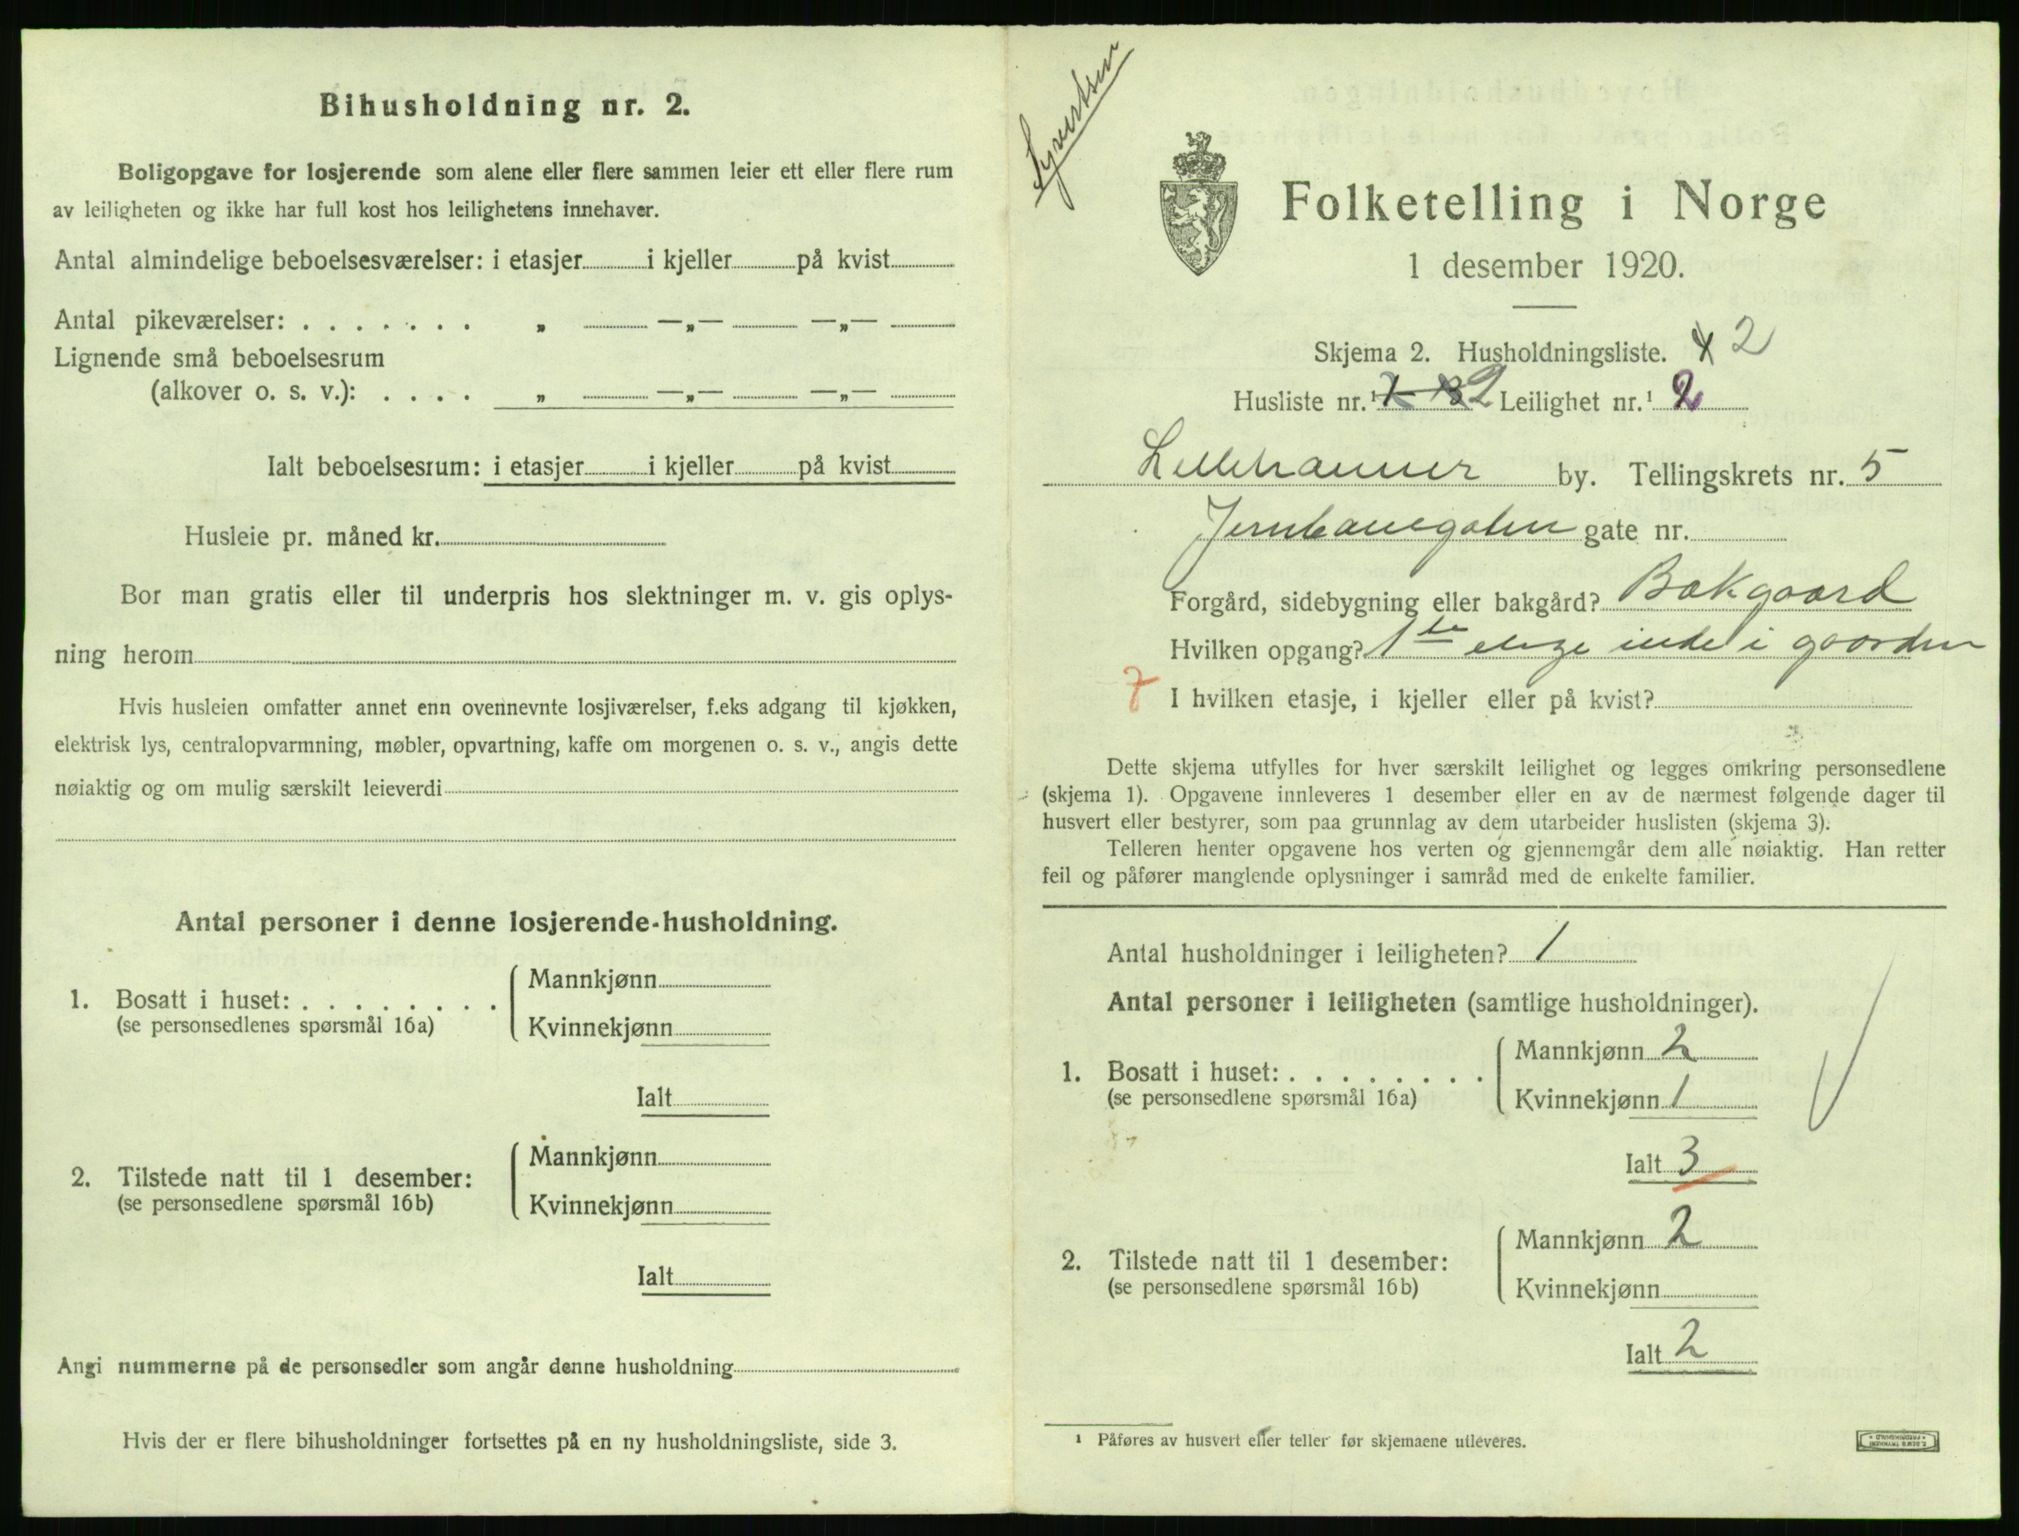 Bihusholdning nr. 2.
Boligopgave for losjerende som alene eller flere sammen leier ett eller flere rum
av leiligheten og ikke har full kost hos leilighetens innehaver.
Antal almindelige beboelsesværelser: i etasjer i kjeller på kvist
Antal pikeværelser: . . . . . . . „ —„— —„—
Lignende små beboelsesrum
(alkover o. s. v.): . . . . „ —„— —„—
Ialt beboelsesrum: i etasjer i kjeller på kvist
Husleie pr. måned kr.
Bor man gratis eller til underpris hos slektninger m. v. gis oplys-
ning herom
Hvis husleien omfatter annet enn ovennevnte losjiværelser, f.eks adgang til kjøkken,
elektrisk lys, centralopvarmning, møbler, opvartning, kaffe om morgenen o. s. v., angis dette
nøiaktig og om mulig særskilt leieverdi
Antal personer i denne losjerende-husholdning.
1. Bosatt i huset: . . . . . . . .
(se personsedlenes spørsmål 16a)
Mannkjønn
Kvinnekjønn
Ialt
2. Tilstede natt til 1 desember:
(se personsedlene spørsmål 16b)
Mannkjønn
Kvinnekjønn
Ialt
Angi nummerne på de personsedler som angår denne husholdning
Hvis der er flere bihusholdninger fortsettes på en ny husholdningsliste, side 3.
Syvertsen
Folketelling i Norge
1 desember 1920.
Skjema 2. Husholdningsliste. 2
Husliste nr.¹ 2 Leilighet nr.¹ 2
Lillehammer by. Tellingskrets nr. 5
Jernbanegaten gate nr.
Forgård, sidebygning eller bakgård? Bakgaard
Hvilken opgang? 1ste inde i gaarden
7 I hvilken etasje, i kjeller eller på kvist?
Dette skjema utfylles for hver særskilt leilighet og legges omkring personsedlene
(skjema 1). Opgavene innleveres 1 desember eller en av de nærmest følgende dager til
husvert eller bestyrer, som paa grunnlag av dem utarbeider huslisten (skjema 3).
Telleren henter opgavene hos verten og gjennemgår dem alle nøiaktig. Han retter
feil og påfører manglende oplysninger i samråd med de enkelte familier.
Antal husholdninger i leiligheten? 1
Antal personer i leiligheten (samtlige husholdninger).
1. Bosatt i huset: . . . . . . . .
(se personsedlene spørsmål 16a)
Mannkjønn 2
Kvinnekjønn 1
Ialt 3
2. Tilstede natt til 1 desember:
(se personsedlene spørsmål 16b)
Mannkjønn 2
Kvinnekjønn
Ialt 2
¹ Påføres av husvert eller teller før skjemaene utleveres.